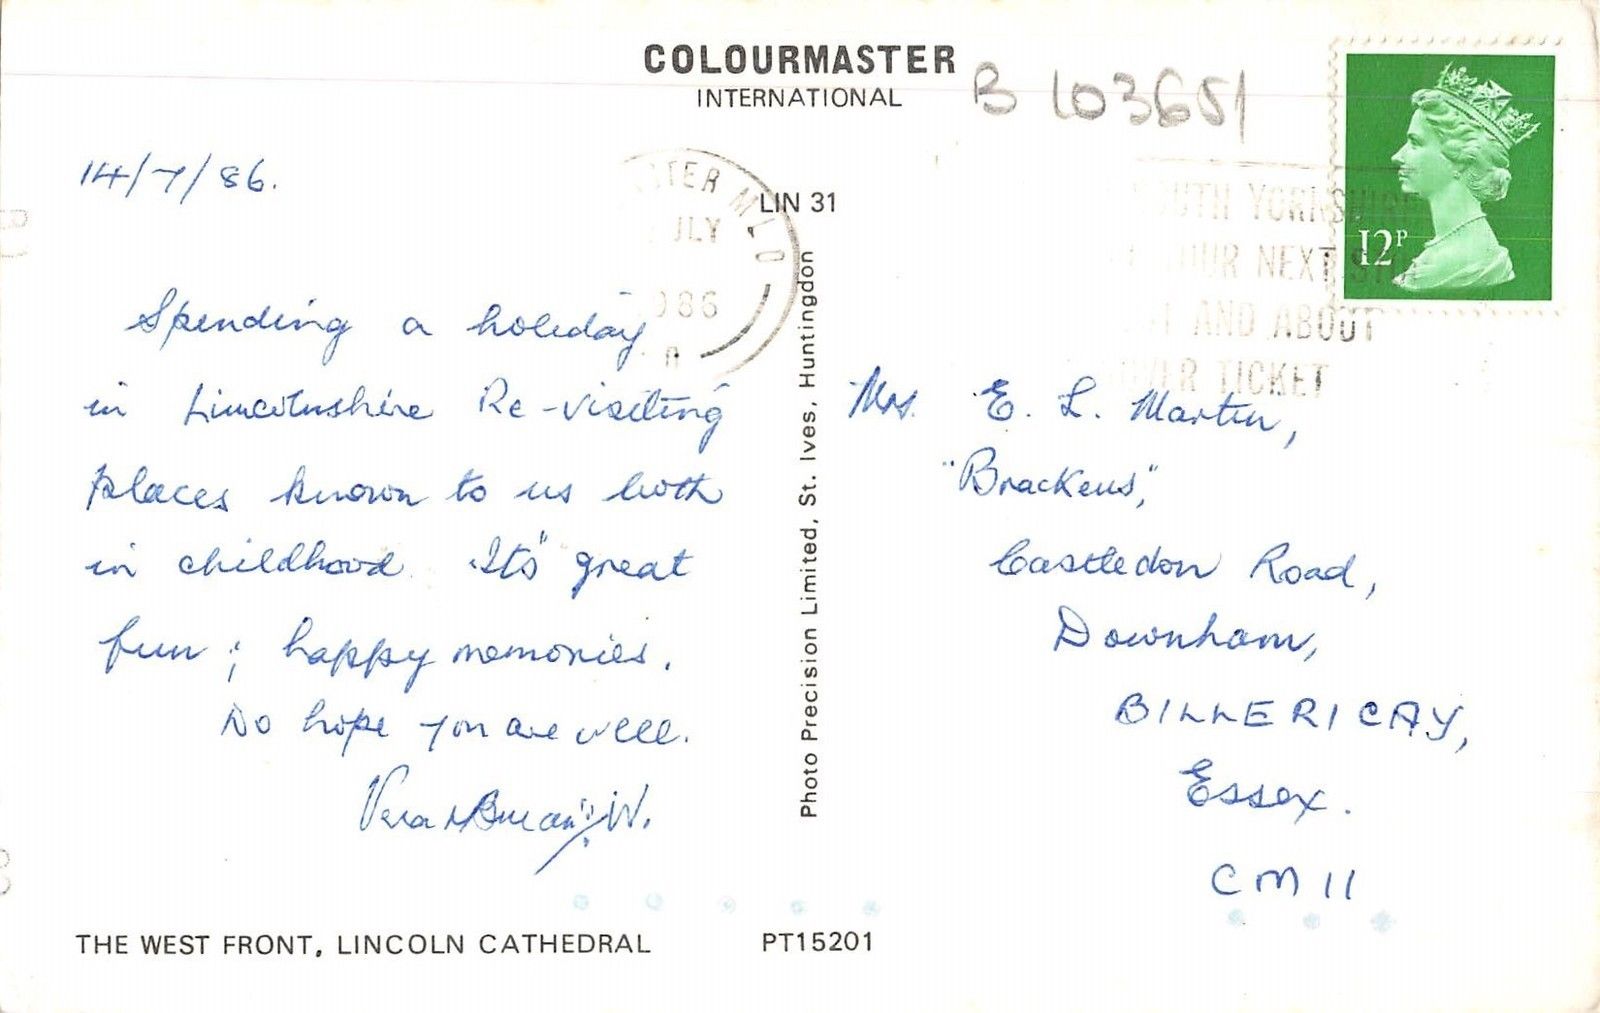 COLOURMASTER
INTERNATIONAL
B 103651
12P
14/7/86.
LIN 31
JLY
86
YORKSHIRE
NEXT
AND ABOUT
TICKET
Spending a holiday
in Lincolnshire Re-visiting
places known to us both
in childhood. "Its" great
fun; happy memories.
Do hope you are well.
Vera & Brian W.
Photo Precision Limited, St. Ives, Huntingdon
Mrs. E. L. Martin,
"Brackens",
Castledon Road,
Downham,
BILLERICAY,
Essex.
CM11
THE WEST FRONT, LINCOLN CATHEDRAL
PT15201